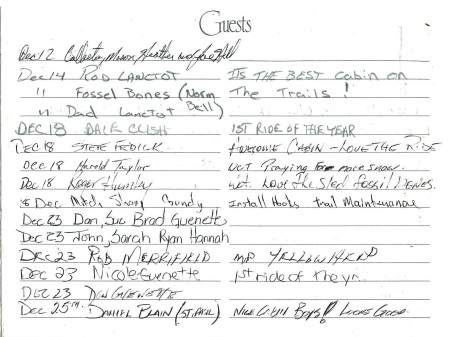 Guests
Dec 12
Dec 14 ROD LANCTOT ITS THE BEST Cabin on
" Fossel Bones (Norm Bell) The Trails!
" Dad Lanctot
DEC 18 DALE CUSH 1ST RIDE OF THE YEAR
DEC 18 STEVE FEDICK AWESOME CABIN - LOVE THE RIDE
Dec 18 Harold Taylor Praying For more snow.
Dec 18 Love The Sled Fossil
18 Dec Gundy Install Hooks trail Maintenance
Dec 23 Dan, Sue Brad Guenette
Dec 23 John, Sarah Ryan Hannah
DEC 23 ROB MERRIFIELD MP YELLOWHEAD
Dec 23 Nicole Guenette 1st ride of the yr.
DEC 23 DON GUENETTE
Dec 25th DANIEL PLAIN (ST. PAUL) NICE CABIN BOYS! LOOKS GOOD